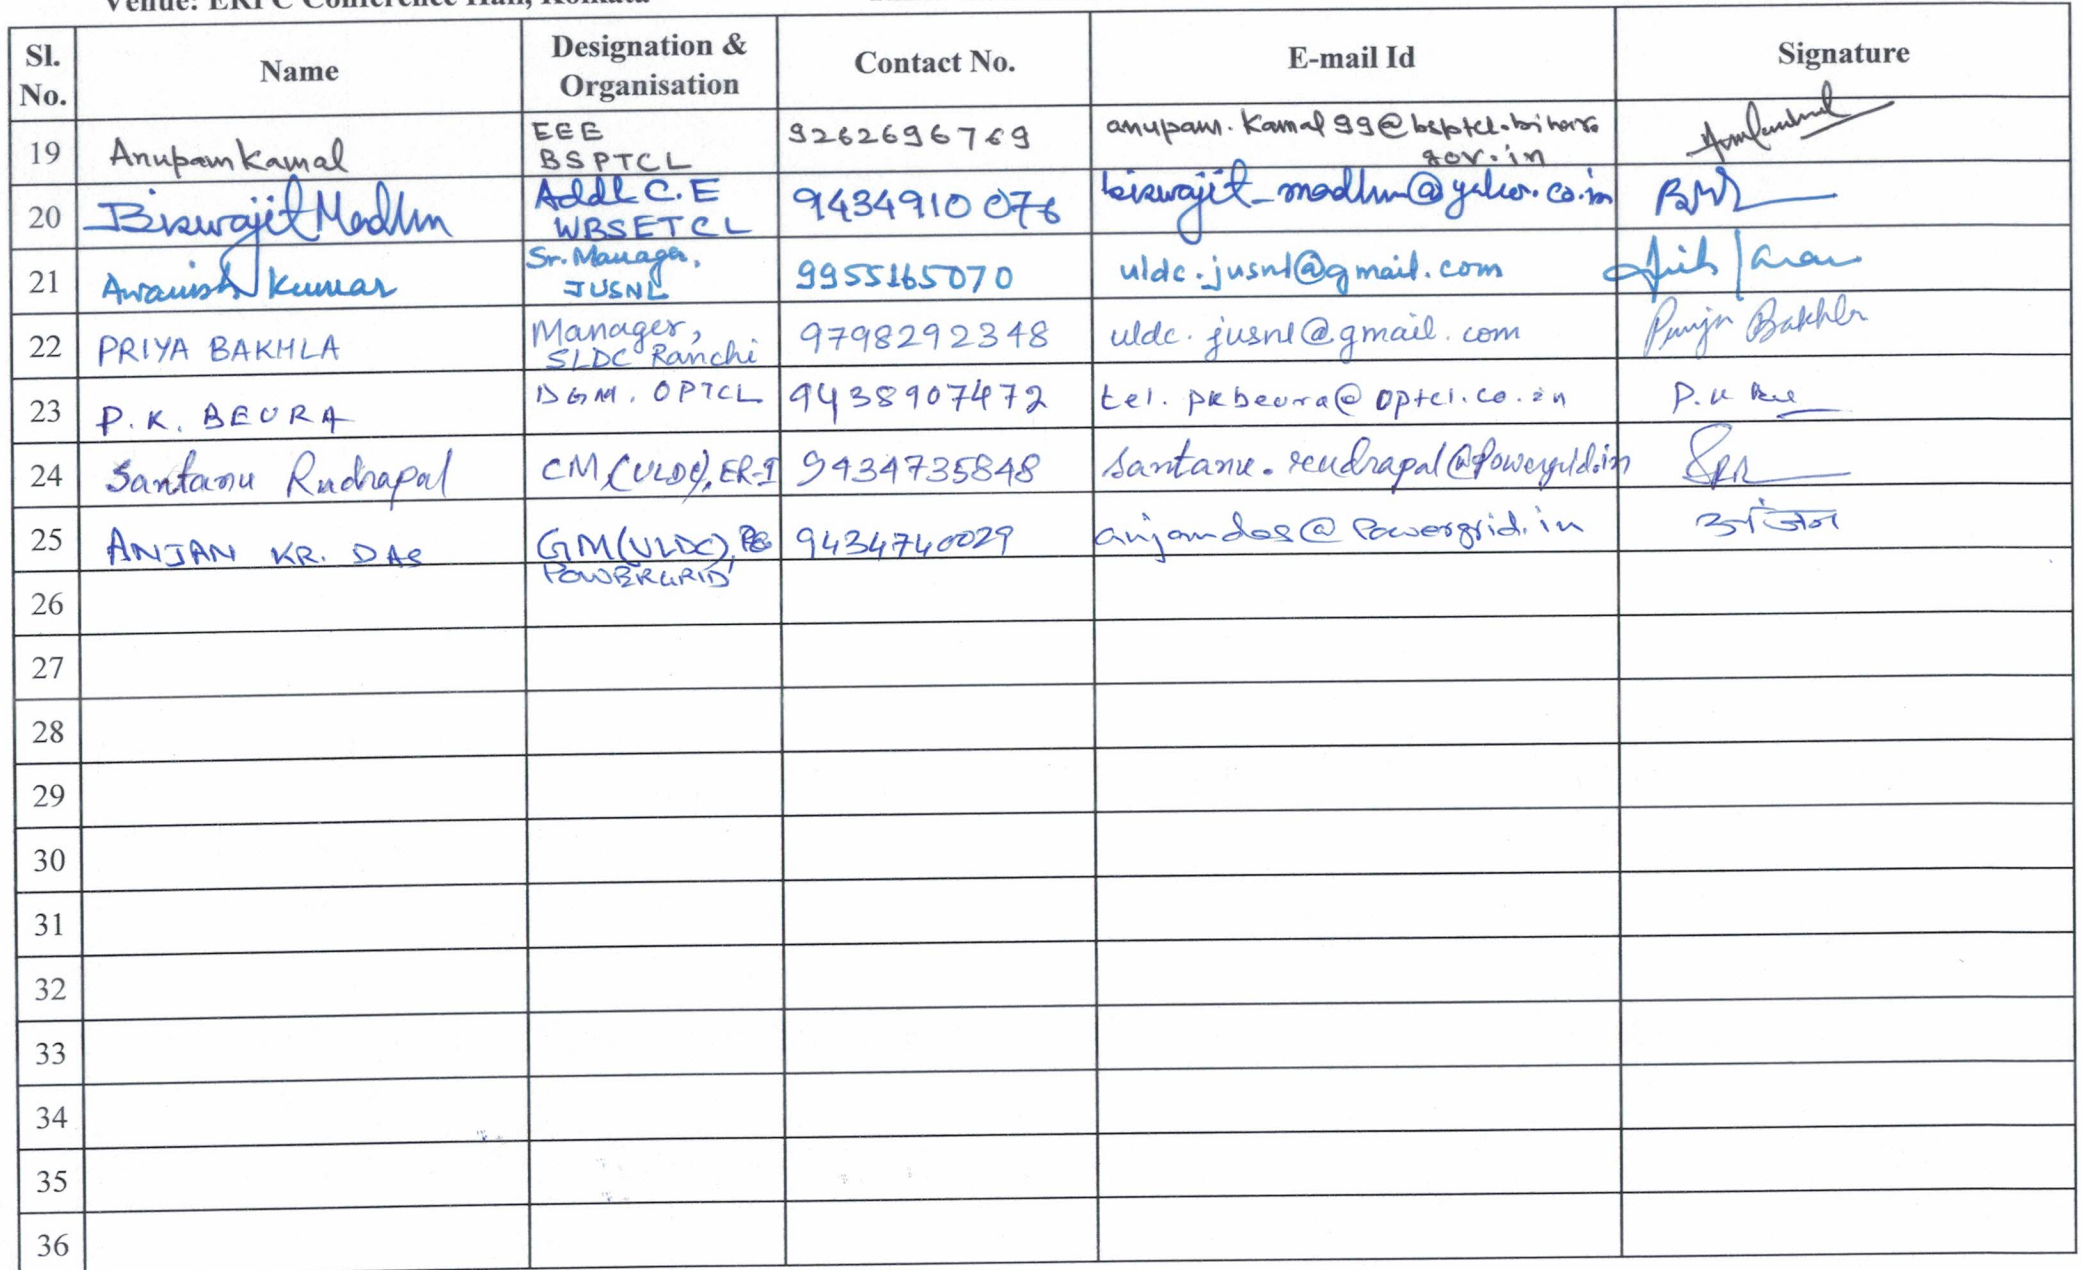 Venue: ERPC Conference Hall, Kolkata
Sl. No. Name Designation & Organisation Contact No. E-mail Id Signature
19 Anupam Kamal EEE BSPTCL 9262696769 anupam.kamal99@bsptcl.bihar.gov.in
20 Biswajit Madhu Addl C.E WBSETCL 9434910076 biswajit_madhu@yahoo.co.in
21 Awanish Kumar Sr. Manager, JUSNL 9955165070 uldc.jusnl@gmail.com
22 PRIYA BAKHLA Manager, SLDC Ranchi 9798292348 uldc.jusnl@gmail.com Priya Bakhla
23 P.K. BEURA DGM, OPTCL 9438907472 tel.pkbeura@optcl.co.in P.K
24 Santanu Rudrapal CM(ULDC), ER-I 9434735848 santanu.rudrapal@powergrid.in
25 ANJAN KR. DAS GM(ULDC), POWERGRID 9434740029 anjandas@powergrid.in अंजन
26
27
28
29
30
31
32
33
34
35
36